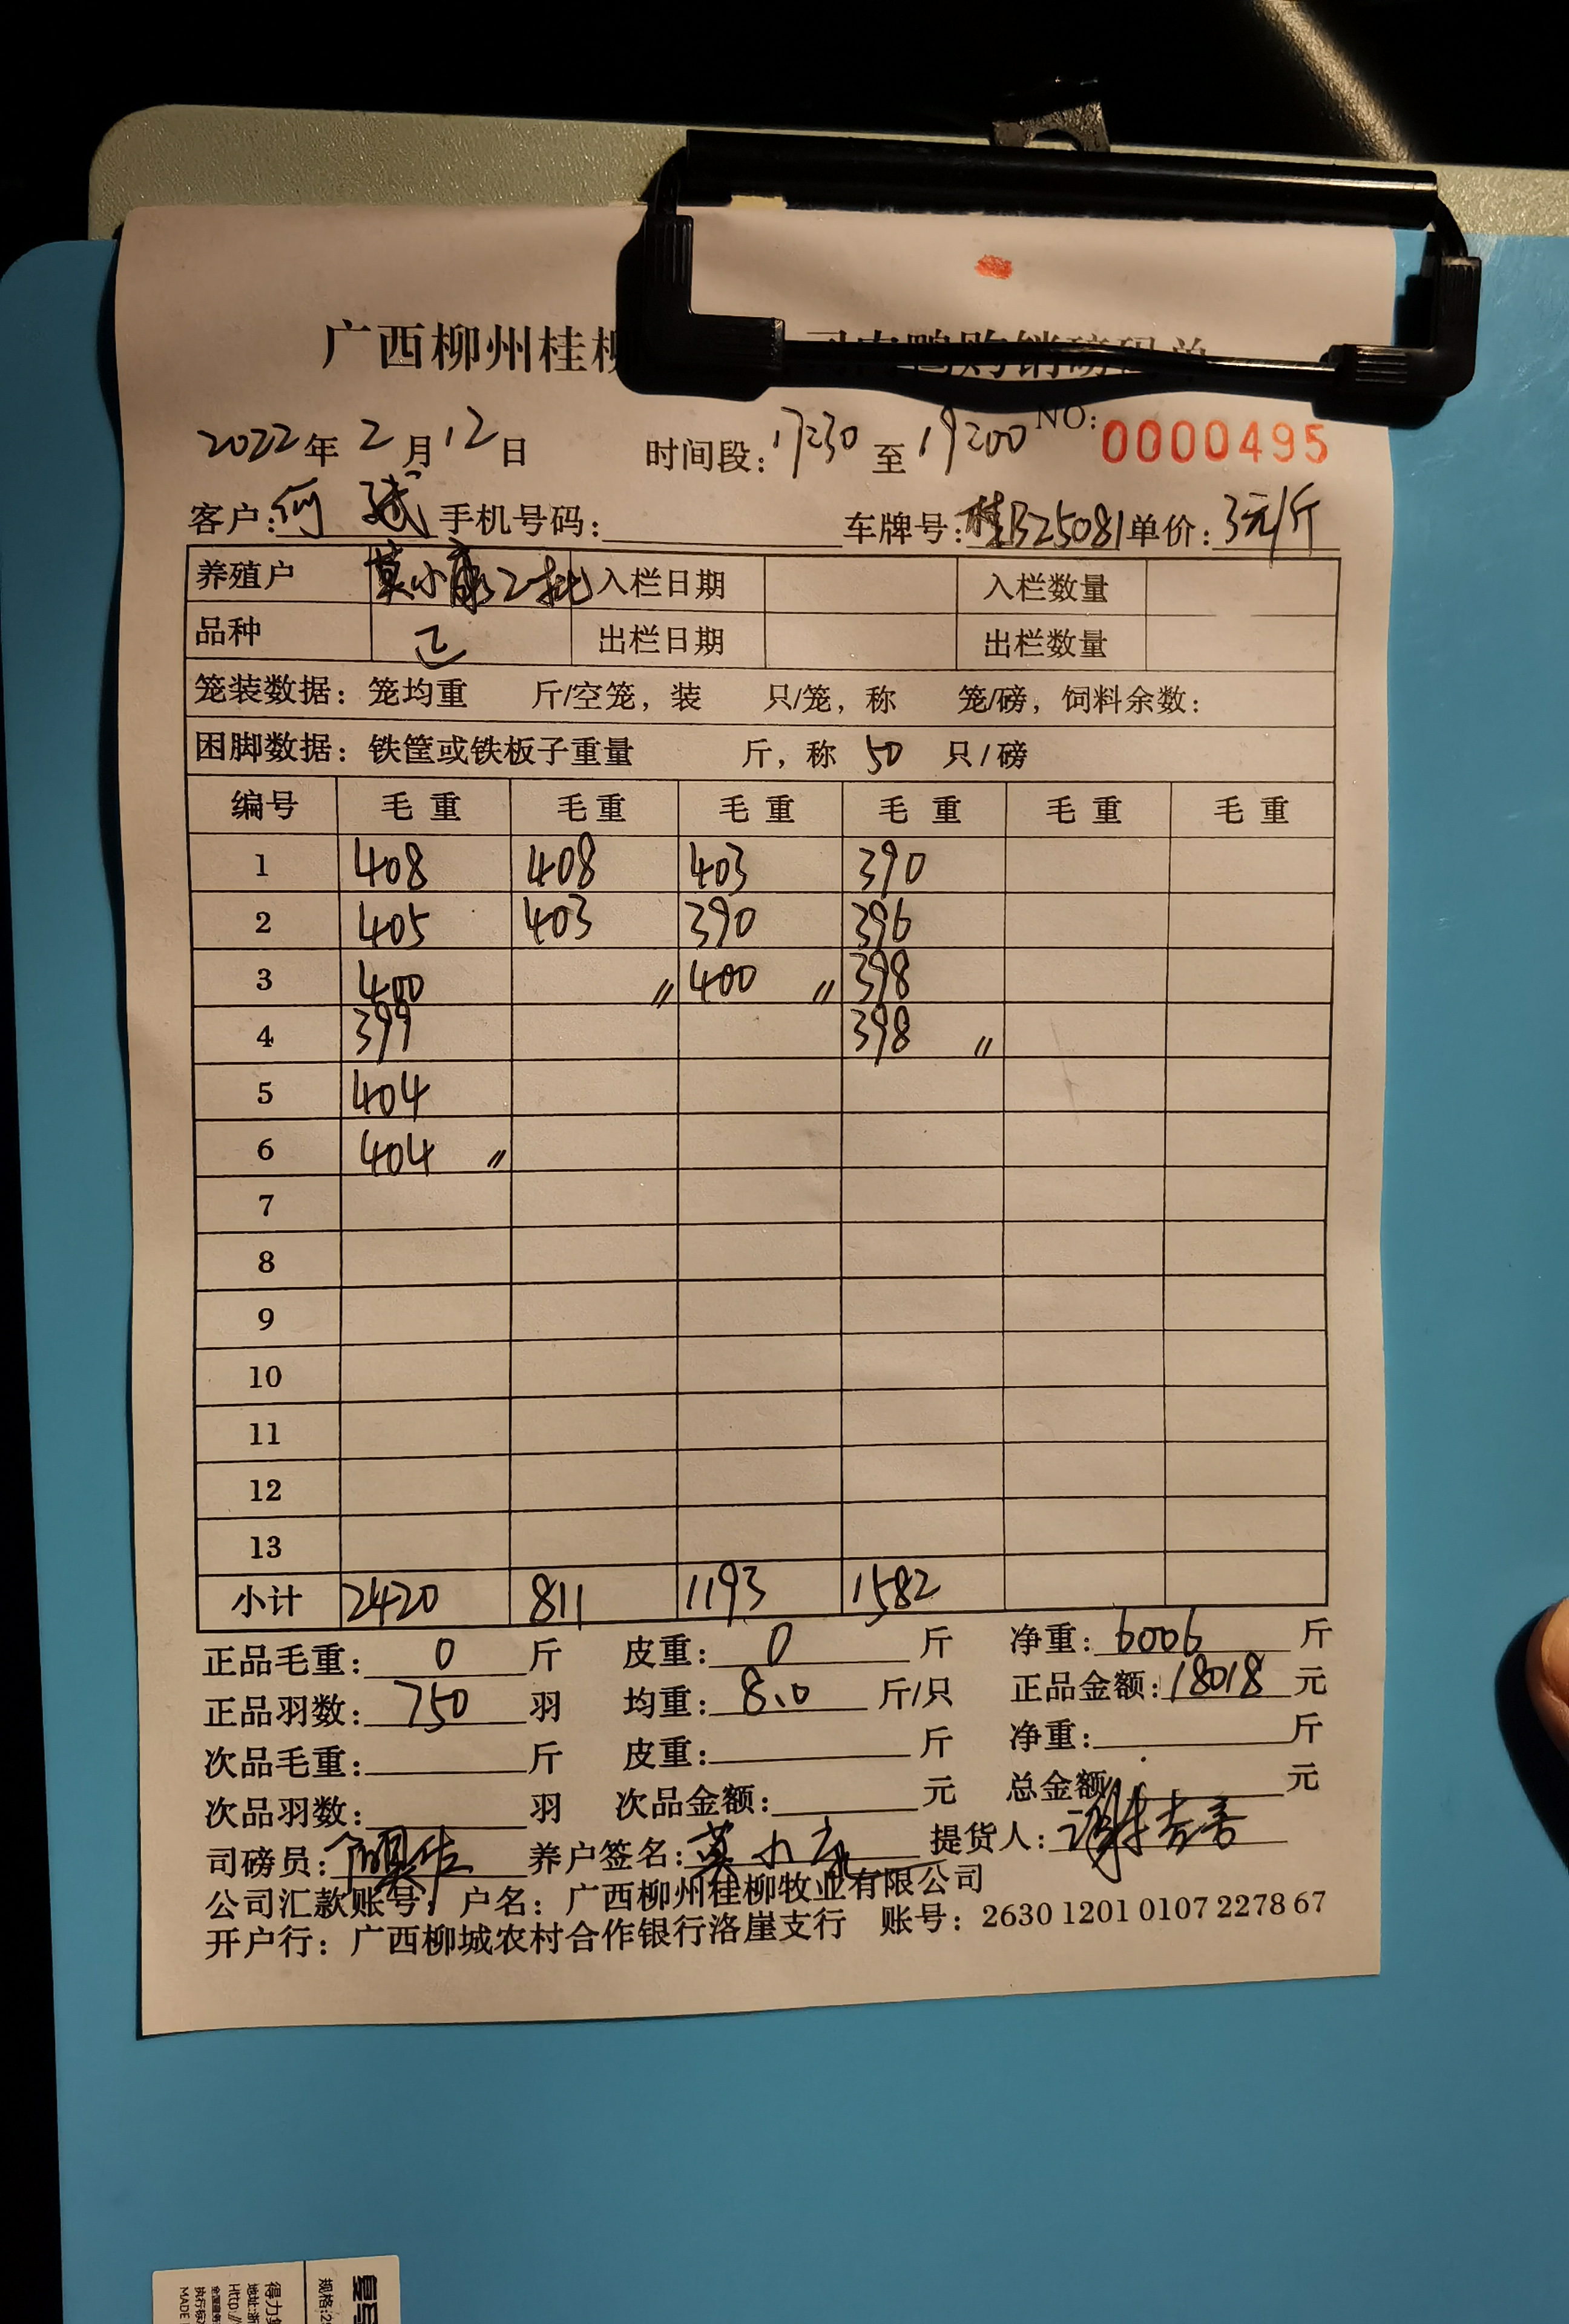 广西柳州桂柳
肉鸭购销磅码单
2022年2月12日 时间段:17:30至19:00 NO:0000495
客户:何斌 手机号码: 车牌号:桂B25081 单价:3元/斤
养殖户 莫小康2批 入栏日期 入栏数量
品种 出栏日期 出栏数量
笼装数据:笼均重 斤/空笼,装 只/笼,称 笼/磅,饲料余数:
困脚数据:铁筐或铁板子重量 斤,称 50 只/磅
编号 毛重 毛重 毛重 毛重 毛重 毛重
1 408 408 403 390
2 405 403 390 396
3 400 〃 400 〃 398
4 399 398 〃
5 404
6 404 〃
7
8
9
10
11
12
13
小计 2420 811 1193 1582
正品毛重:0斤 皮重:0斤 净重:6006斤
正品羽数:750羽 均重:8.0斤/只 正品金额:18018元
次品毛重: 斤 皮重: 斤 净重: 斤
次品羽数: 羽 次品金额: 元 总金额: 元
司磅员: 养户签名:莫小康 提货人:
公司汇款账号:户名:广西柳州桂柳牧业有限公司
开户行:广西柳城农村合作银行洛崖支行 账号:2630 1201 0107 2278 67
得力集
地址:浙
Http:/
全国服务
执行标
MADE
规格:2